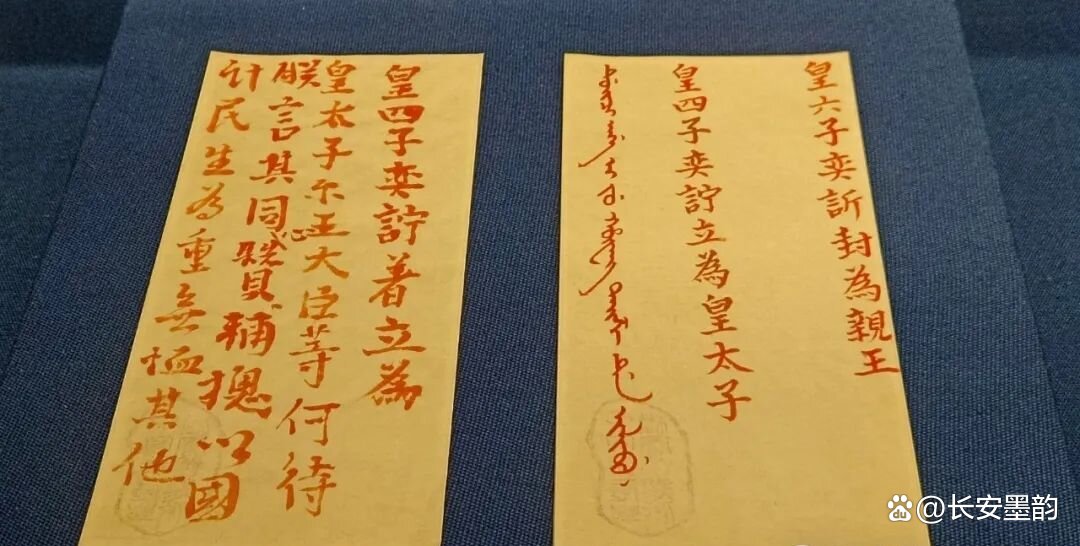 皇六子奕訢封為親王
皇四子奕詝立為皇太子
皇四子奕詝着立為
皇太子尔王大臣等何待
朕言其同心贊輔揔以國
計民生為重無恤其他
du @长安墨韵